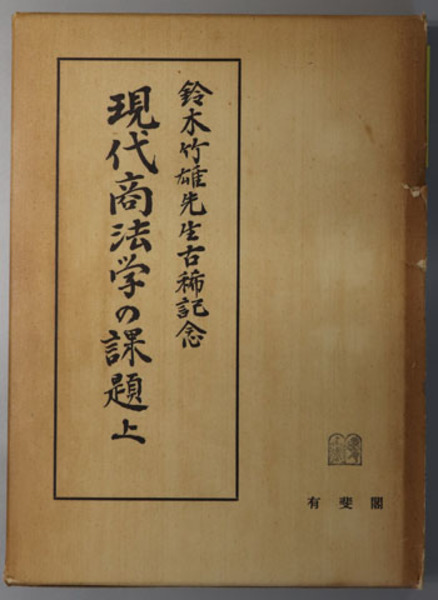 鈴木竹雄先生古稀記念
現代商法学の課題 上
有斐閣